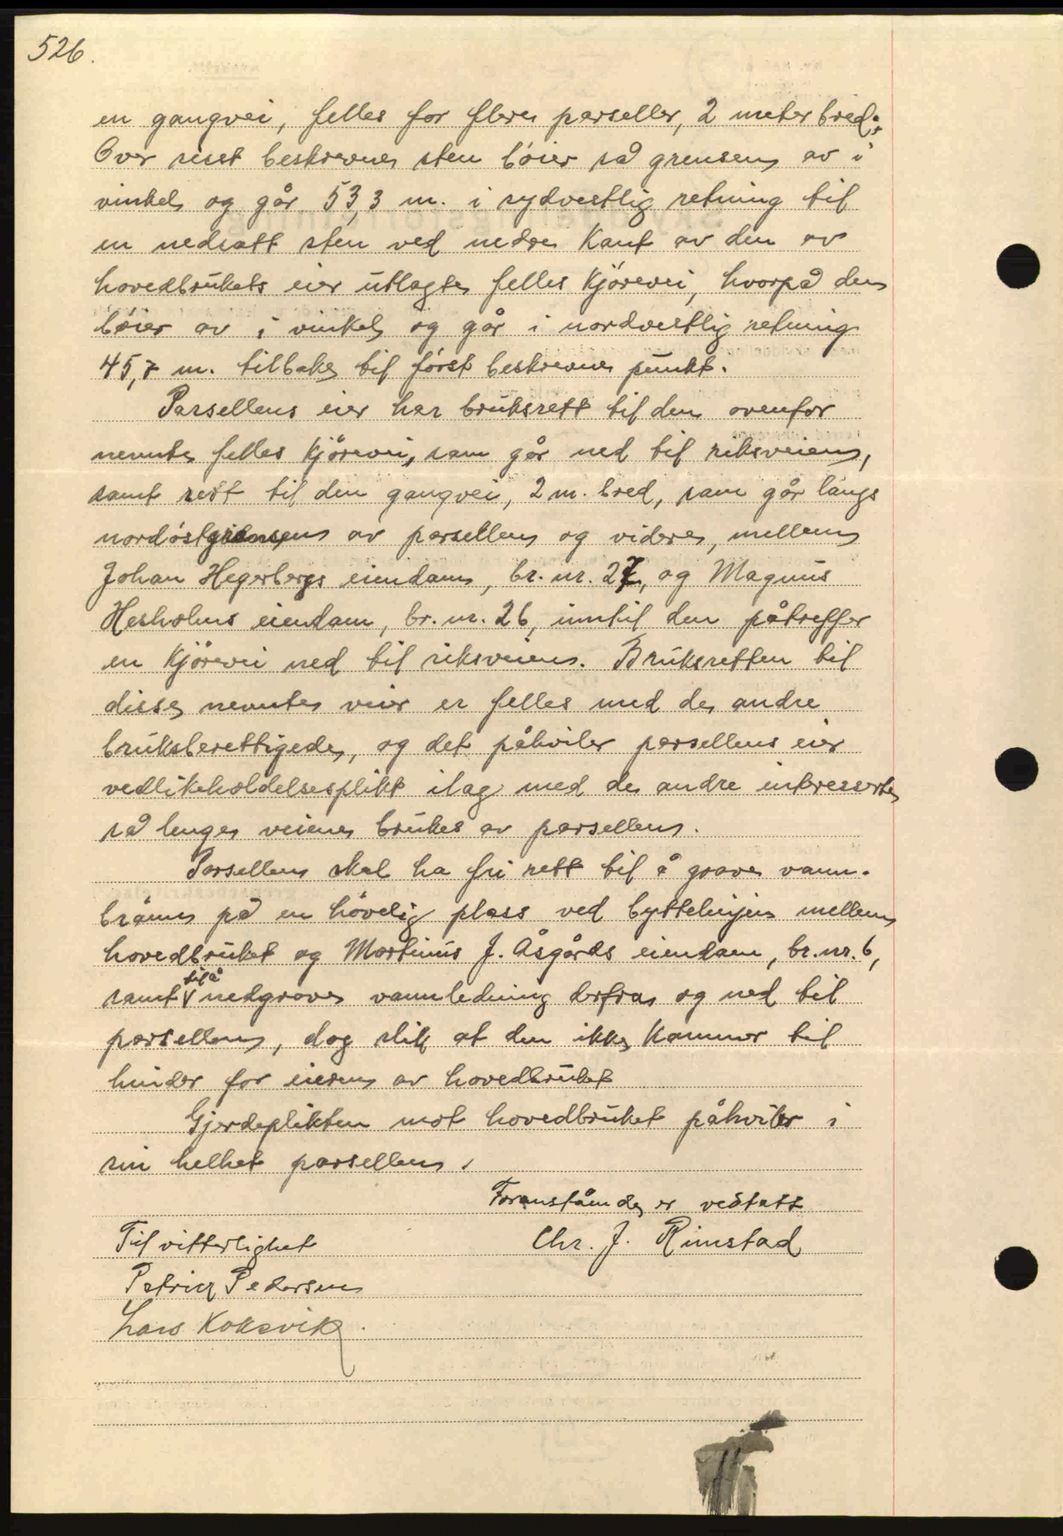 526.
en gangvei, felles for flere parseller, 2 meter bred.
Over sist beskrevne sten bøier så grensen av i
vinkel og går 53,3 m. i sydvestlig retning til
en nedsatt sten ved nedre kant av den av
hovedbrukets eier utlagte felles kjørevei, hvorpå den
bøier av i vinkel og går i nordvestlig retning
45,7 m. tilbake til først beskrevne punkt.
Parsellens eier har bruksrett til den ovenfor
nevnte felles kjørevei, som går ned til riksveien,
samt rett til den gangvei, 2 m. bred, som går langs
nordøstgrensen av parsellen og videre, mellem
Johan Hegerbergs eiendom, br. nr. 27, og Magnus
Hesholms eiendom, br. nr. 26, inntil den påtreffer
en kjørevei ned til riksveien. Bruksretten til
disse nevnte veier er felles med de andre
bruksberettigede, og det påhviler parsellens eier
vedlikeholdelsesplikt ilag med de andre intresserte
så lenge veiene brukes av parsellen.
Parsellen skal ha fri rett til å grave vann-
brønn på en høvelig plass ved byttelinjen mellem
hovedbruket og Martinus J. Åsgårds eiendom, br. nr. 6,
samt til å nedgrave vannledning derfra og ned til
parsellen, dog slik at den ikke kommer til
hinder for eieren av hovedbruket
Gjerdeplikten mot hovedbruket påhviler i
sin helhet parsellen.
Foranstående er vedtatt
Til vitterlighet Chr. J. Rimstad
Patrick Pedersen
Lars Koksvik.